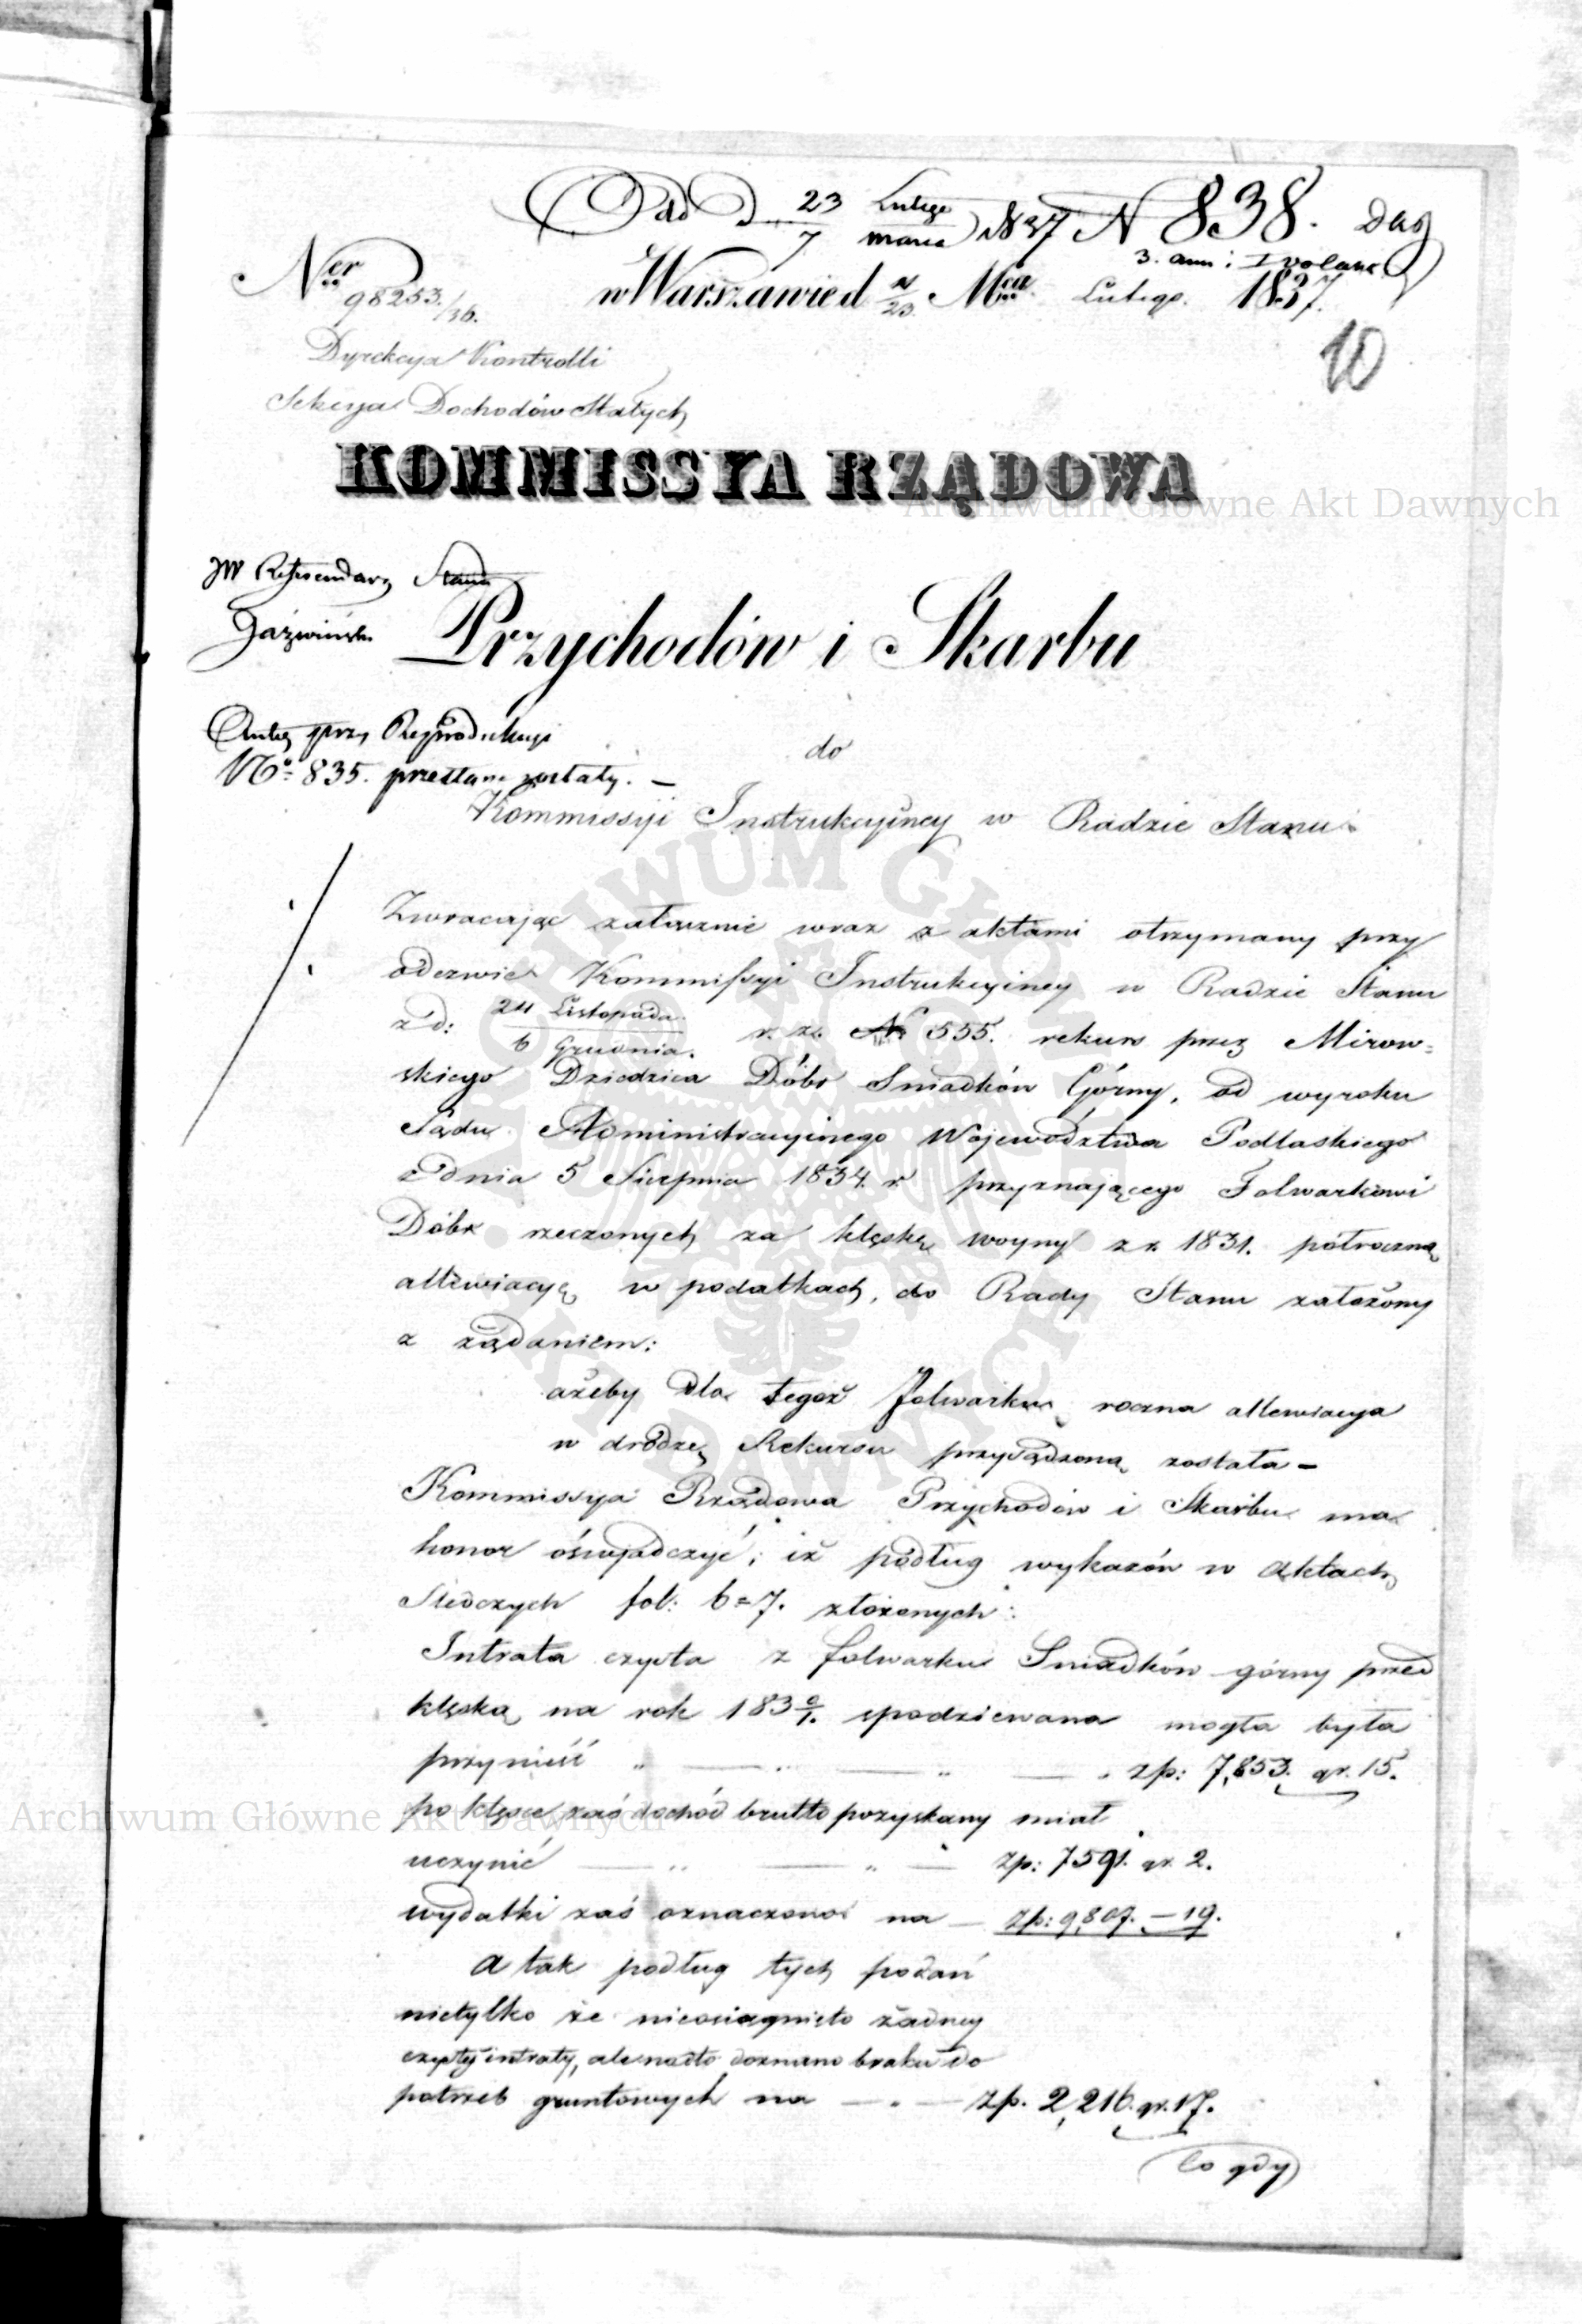 Odd D. 23 Lutego / 7 Marca 1837 N 838. Dag
3. ann: I wolane
Ner 98253./36.
w Warszawie d 11/23. Mca Lutego. 1837.
10
Dyrekcya Kontrolli
Sekcya Dochodów Stałych
KOMMISSYA RZĄDOWA
JW Referendarz Stanu
Jaźwiński
Przychodów i Skarbu
Akta przy Reprodukcyi
No 835. przesłane zostały. —
do
Kommissyi Instrukcyiney w Radzie Stanu
Zwracając załącznie wraz z aktami otrzymany przy
odezwie Kommissyi Instrukcyiney w Radzie Stanu
z d: 24 Listopada / 6 Grudnia. r. z. N 555. rekurs przez Mirow=
skiego Dziedzica Dóbr Sniadków Górny, od wyroku
Sądu Administracyinego Województwa Podlaskiego
z dnia 5 Sierpnia 1834. r. przyznającego Folwarkowi
Dóbr rzeczonych za klęskę woyny z r. 1831. półroczną
allewiacyę w podatkach, do Rady Stanu założony
z żądaniem:
ażeby dla tegoż Folwarku roczna allewiacya
w drodze Rekursu przysądzoną została —
Kommissya Rządowa Przychodów i Skarbu ma
honor oświadczyć; iż podług wykazów w aktach
Śledczych fol: 6=7. złożonych:
Intrata czysta z folwarku Sniadków górny przed
klęską na rok 183 0/1. spodziewana mogła była
przynieść " — " — " — " zp: 7,853. gr. 15.
po klęsce zaś dochód brutto pozyskany miał
uczynić — " — " — zp: 7591. gr. 2.
wydatki zaś oznaczono na — zp: 9,807. — 19.
a tak podług tych podań
nietylko że nieosiągnięto żadney
czystey intraty, ale nadto doznano braku do
potrzeb gruntowych na — " — zp. 2,216. gr. 17.
Co gdy
Archiwum Główne Akt Dawnych
Archiwum Główne Akt Dawnych
ARCHIWUM GŁÓWNE AKT DAWNYCH W WARSZAWIE